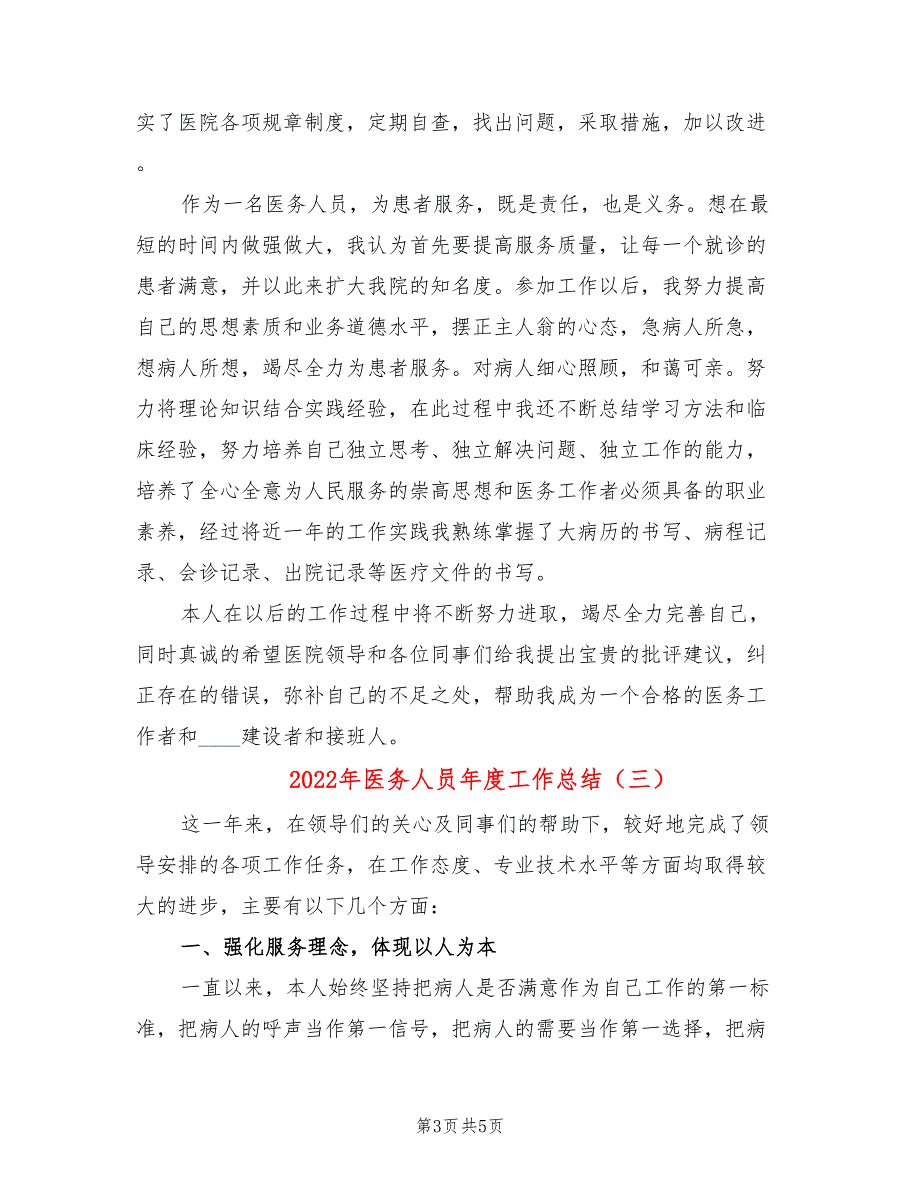 实了医院各项规章制度，定期自查，找出问题，采取措施，加以改进
。
作为一名医务人员，为患者服务，既是责任，也是义务。想在最
短的时间内做强做大，我认为首先要提高服务质量，让每一个就诊的
患者满意，并以此来扩大我院的知名度。参加工作以后，我努力提高
自己的思想素质和业务道德水平，摆正主人翁的心态，急病人所急，
想病人所想，竭尽全力为患者服务。对病人细心照顾，和蔼可亲。努
力将理论知识结合实践经验，在此过程中我还不断总结学习方法和临
床经验，努力培养自己独立思考、独立解决问题、独立工作的能力，
培养了全心全意为人民服务的崇高思想和医务工作者必须具备的职业
素养，经过将近一年的工作实践我熟练掌握了大病历的书写、病程记
录、会诊记录、出院记录等医疗文件的书写。
本人在以后的工作过程中将不断努力进取，竭尽全力完善自己，
同时真诚的希望医院领导和各位同事们给我提出宝贵的批评建议，纠
正存在的错误，弥补自己的不足之处，帮助我成为一个合格的医务工
作者和____建设者和接班人。
2022年医务人员年度工作总结（三）
这一年来，在领导们的关心及同事们的帮助下，较好地完成了领
导安排的各项工作任务，在工作态度、专业技术水平等方面均取得较
大的进步，主要有以下几个方面：
一、强化服务理念，体现以人为本
一直以来，本人始终坚持把病人是否满意作为自己工作的第一标
准，把病人的呼声当作第一信号，把病人的需要当作第一选择，把病
第3页共5页